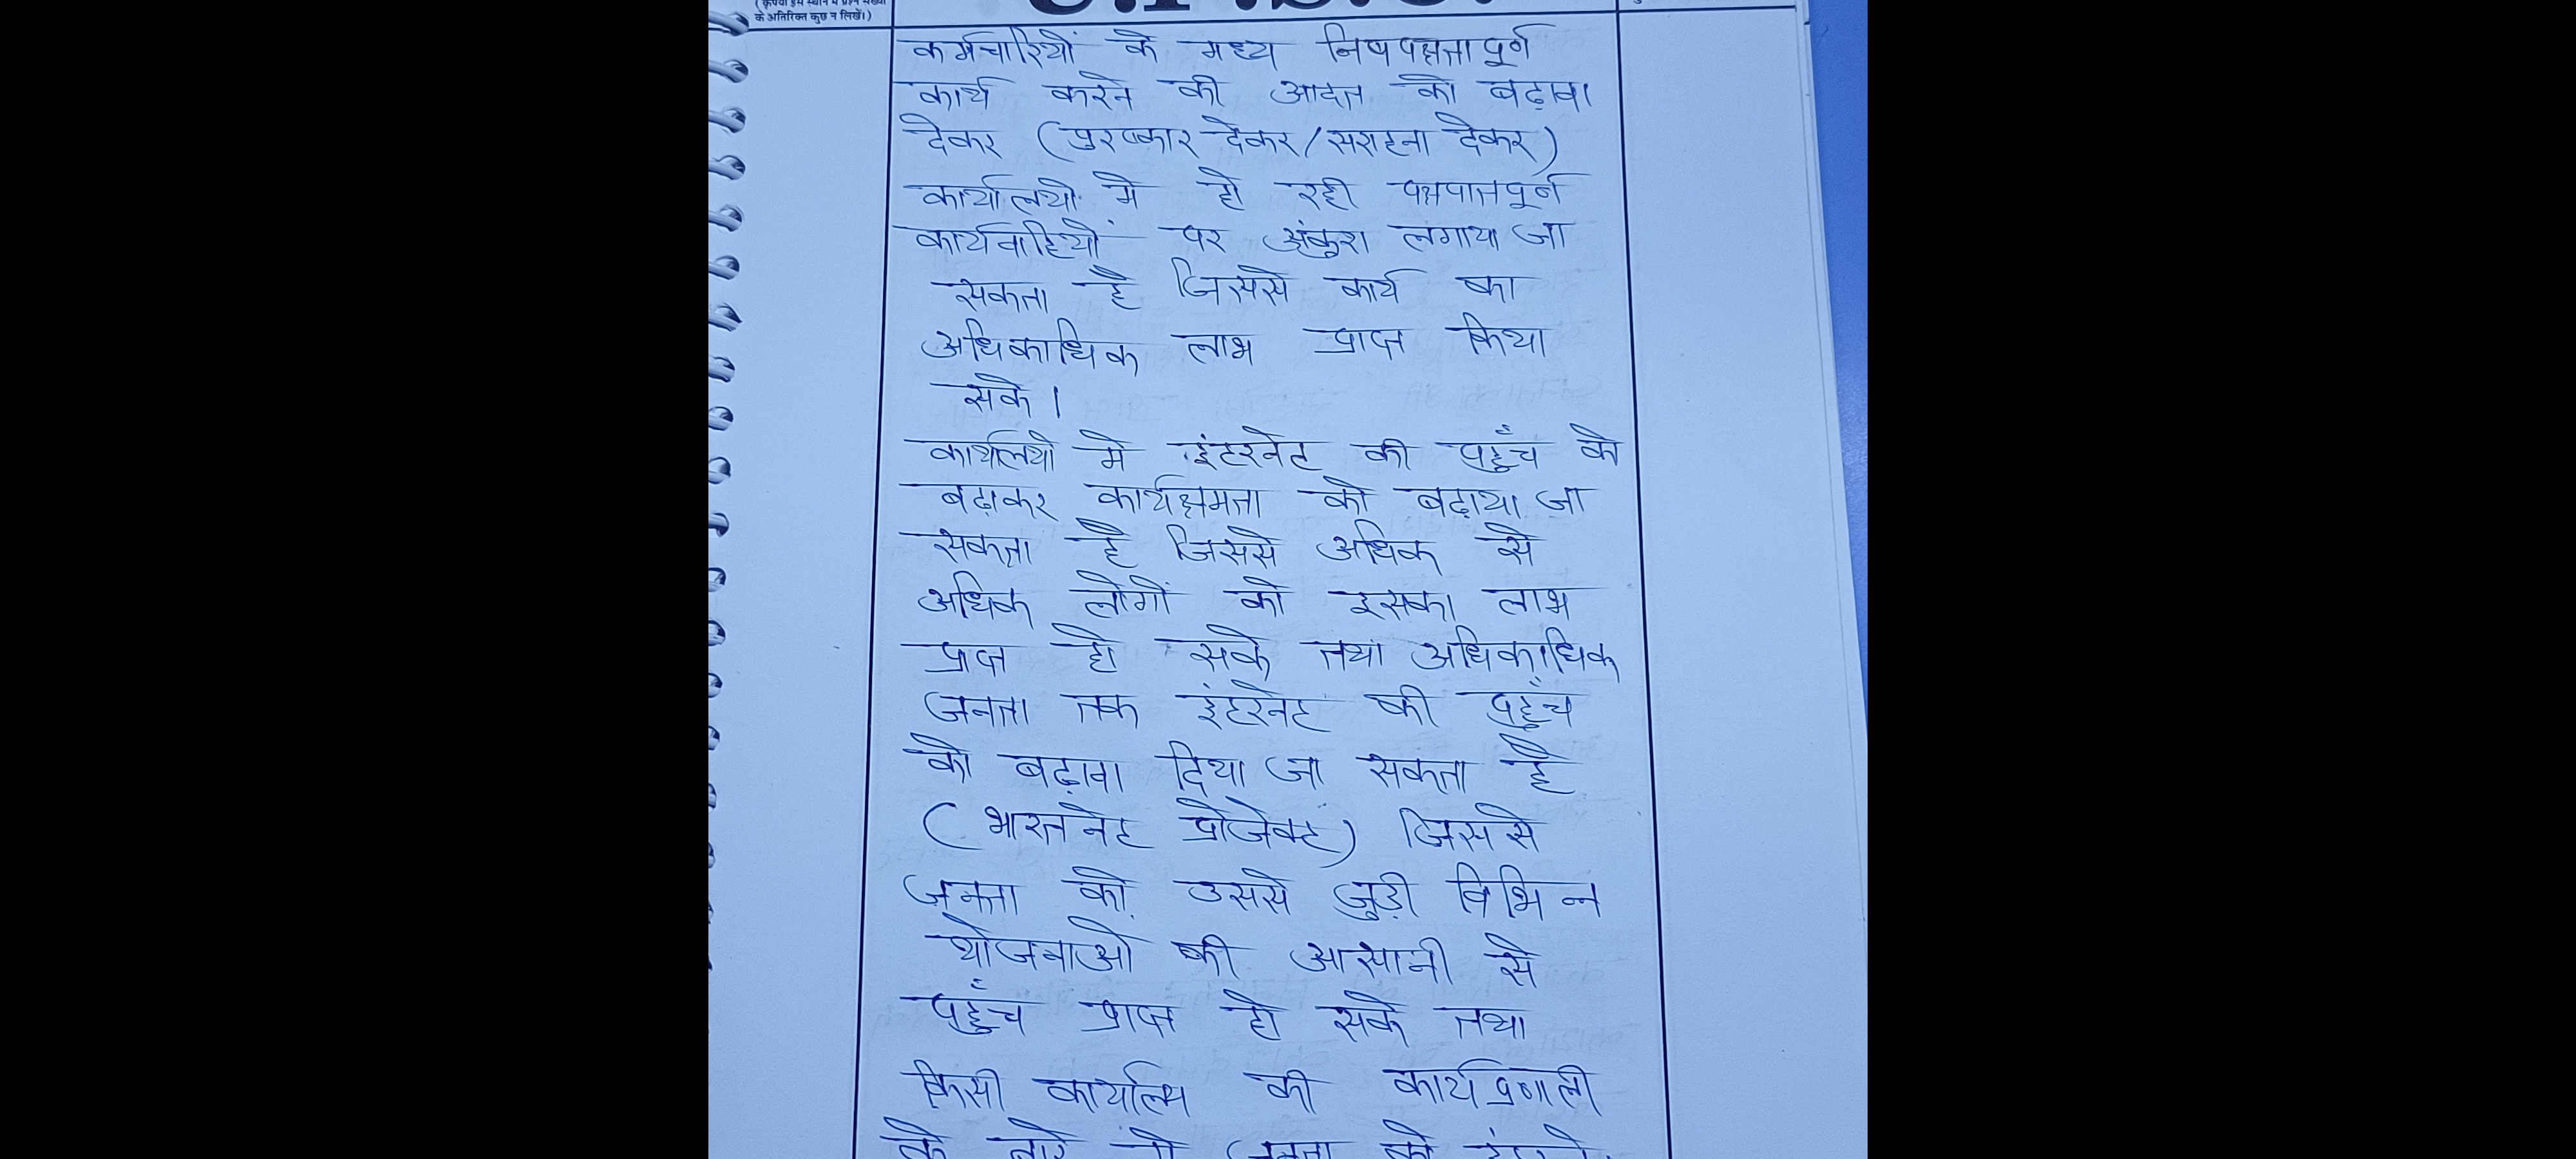 के अतिरिक्त कुछ न लिखें।)
कर्मचारियों के मध्य निषपक्षतापूर्ण
कार्य करने की आदत को बढ़ावा
देकर (पुरष्कार देकर/सराहना देकर)
कार्यालयो में हो रही पक्षपातपूर्ण
कार्यवाहियों पर अंकुश लगाया जा
सकता है जिससे कार्य का
अधिकाधिक लाभ प्राप्त किया
सके।
कार्यालयो मे इंटरनेट की पहुँच को
बढ़ाकर कार्यक्षमता को बढ़ाया जा
सकता है जिससे अधिक से
अधिक लोगों को इसका लाभ
प्राप्त हो सके तथा अधिकाधिक
जनता तक इंटरनेट की पहुँच
को बढ़ावा दिया जा सकता है
(भारतनेट प्रोजेक्ट) जिससे
जनता को उससे जुड़ी विभिन्न
योजनाओ की आसानी से
पहुँच प्राप्त हो सके तथा
किसी कार्यालय की कार्यप्रणाली